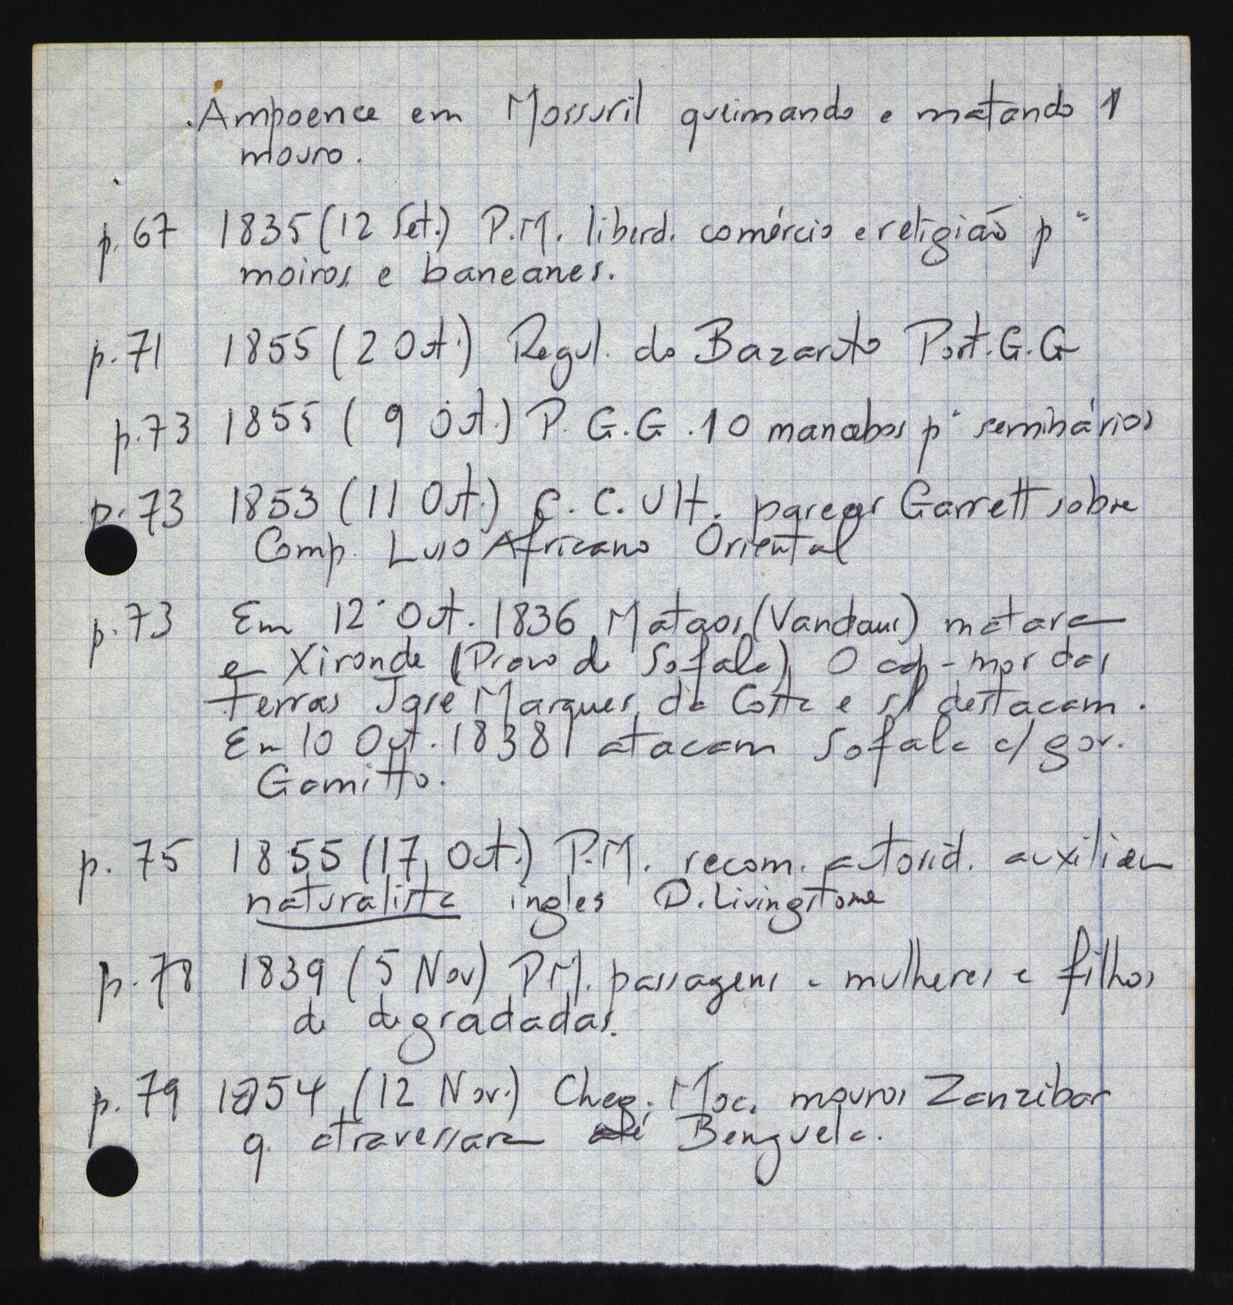 .Ampoence em Mossuril queimando e matando 1
mouro.
p. 67 1835 (12 Set.) P.M. liberd. comércio e religião pª
moiros e baneanes.
p. 71 1855 (2 Out.) Regul. do Bazaruto Port. G.G
p. 73 1855 (9 Out.) P. G.G. 10 mancebos pª seminários
p. 73 1853 (11 Out.) C. C. Ult. parecer Garrett sobre
Comp. Luso Africano Oriental
p. 73 Em 12 Out. 1836 (Vandaus) mataram
em Xironde (Provo de Sofala) O cap-mor das
terras José Marques da Costa e destacam.
Em 10 Out. 1838 atacam Sofala c/ gov.
Gamitto.
p. 75 1855 (17, Out.) P.M. recom. autorid. auxiliem
naturalista ingles D. Livingstone
p. 78 1839 (5 Nov) P.M. passagens a mulheres e filhos
de degradadas.
p. 79 1854 (12 Nov.) Cheg. Moc. mouros Zanzibar
q. atravessaram até Benguela.